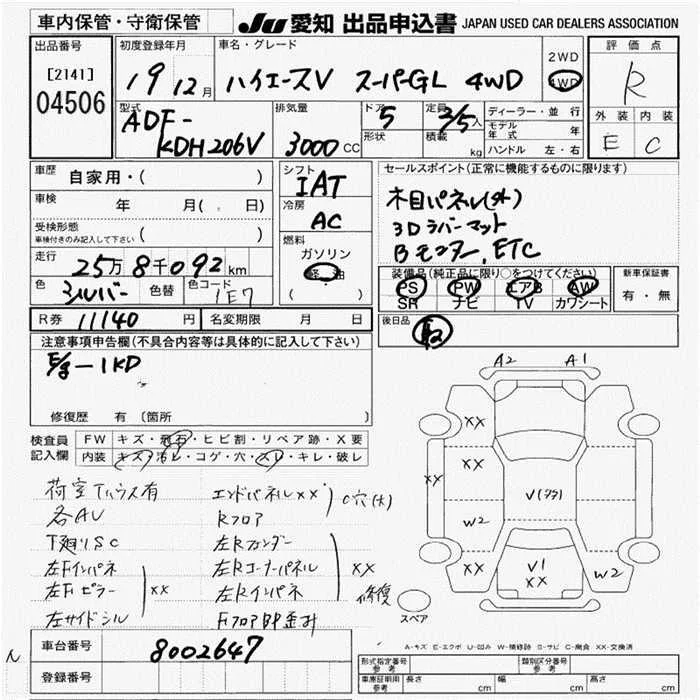 車内保管・守衛保管
JU 愛知 出品申込書 JAPAN USED CAR DEALERS ASSOCIATION
出品番号
[2141]
04506
初度登録年月
19 12月
車名・グレード
ハイエースV スーパーGL 4WD
2WD
4WD
評価点
R
外装 内装
E C
型式
ADF-
KDH206V
排気量
3000 CC
ドア 5
形状
定員 2/5 人
積載 kg
ディーラー・並行
モデル年式 年
ハンドル 左・右
車歴 自家用・( )
車検 年 月( . 日)
受検形態
車検付きのみ記入して下さい ( )
走行 25万8千092km
色 シルバー 色替 色コード 1E7
シフト
IAT
冷房
AC
燃料
ガソリン
軽油
( )
セールスポイント(正常に機能するものに限ります)
木目パネル(外)
3Dラバーマット
Bモニター, ETC
装備品(純正品に限り○をつけてください)
PS PW エアB AW
SR ナビ TV カワシート
新車保証書
有・無
R券 11140 円
名変期限 月 日
後日品
注意事項申告欄(不具合内容等は具体的に記入して下さい)
E/g-1KD
修復歴 有 〔箇所
検査員
記入欄
FW キズ・飛石・ヒビ割・リペア跡・X要
内装 キズ・汚レ・コゲ・穴・スレ・キレ・破レ
荷室Tハウス有
各AU
下廻りSC
左Fインパネ
左Fピラー
XX
左サイドシル
エンドパネルXX
Rフロア
C穴(大)
左Rフェンダー
左Rコーナーパネル
左Rインパネ
XX
修復
A2 A1
XX
XX
XX
W2
V1
XX
XX
W2
スペア
A-キズ E-エクボ U-凹み W-補修跡 S-サビ C-腐食 XX-交換済
車台番号 8002647
登録番号
型式指定番号
参考
類別区分番号
参考
車庫証明用
参考
長さ cm 幅 cm 高さ cm